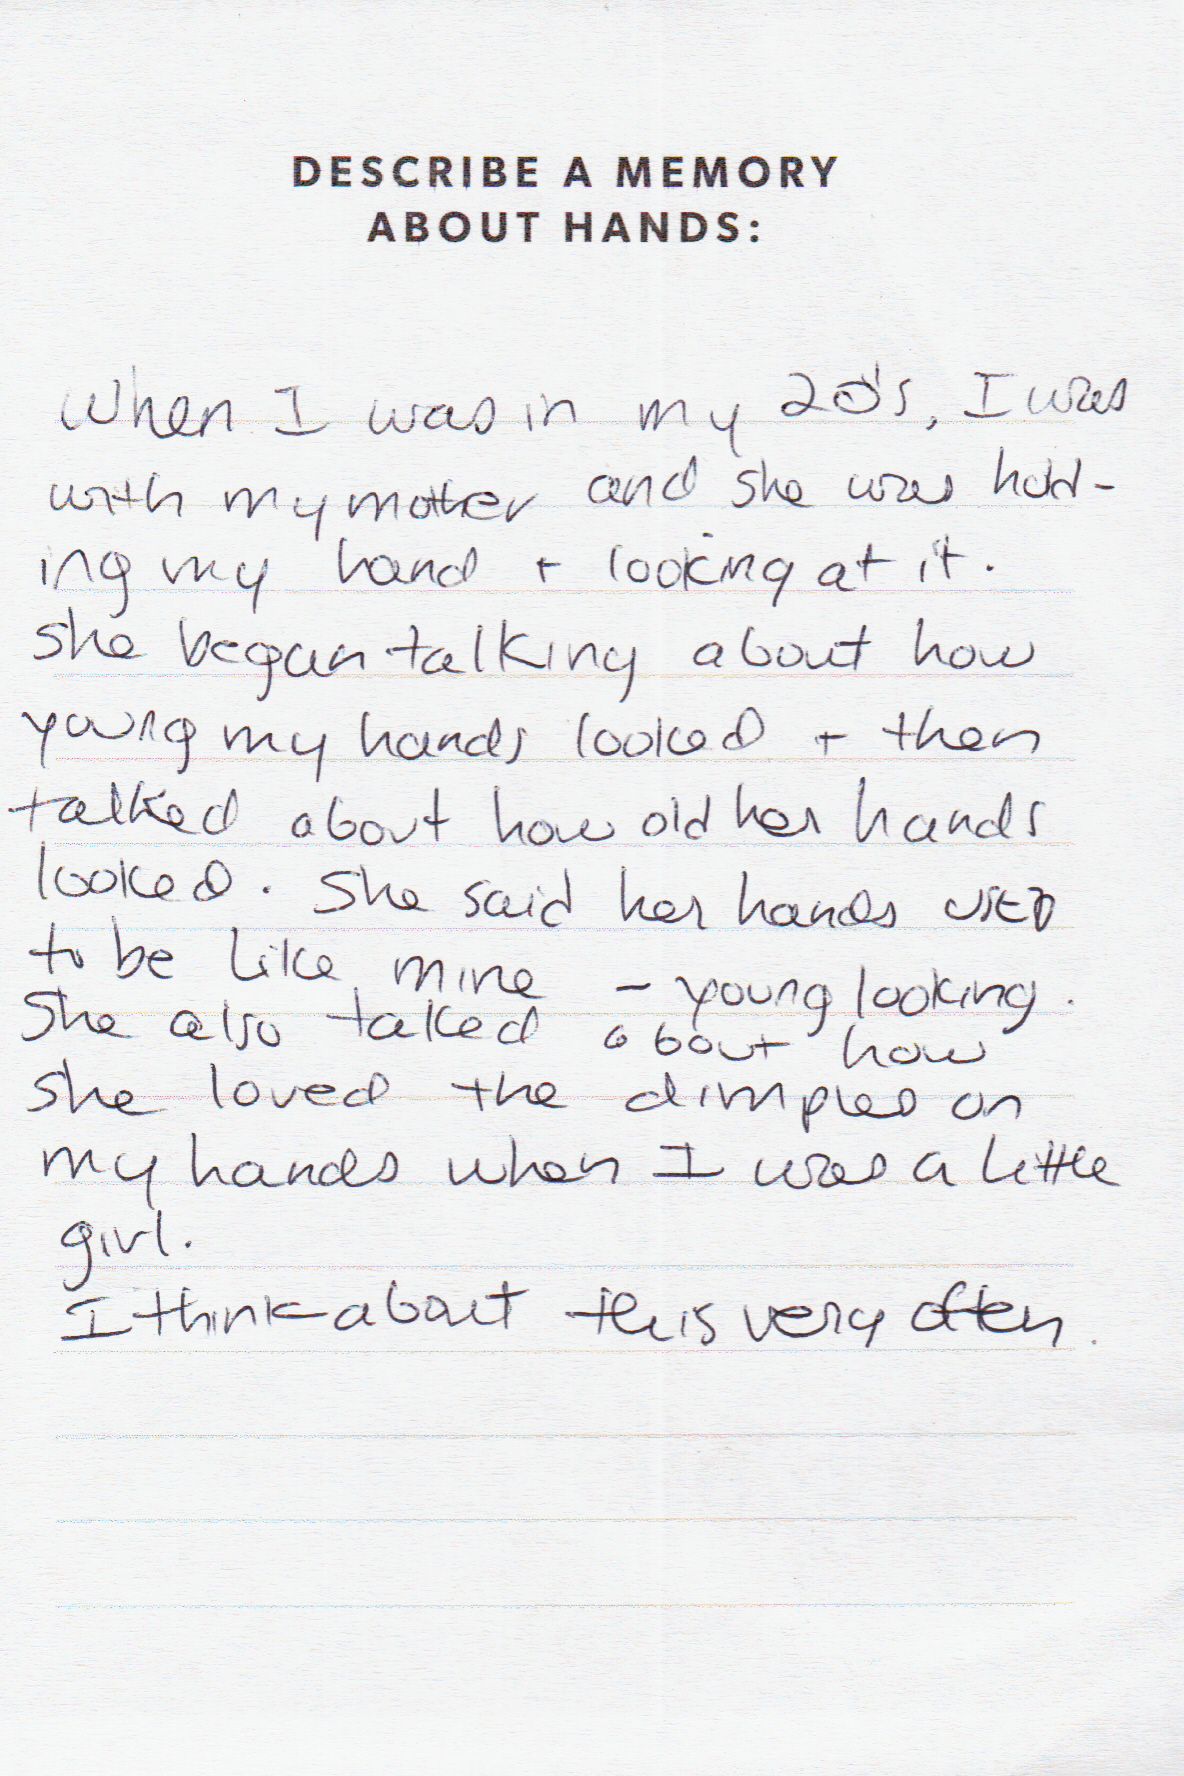 DESCRIBE A MEMORY
ABOUT HANDS:
When I was in my 20's, I was
with my mother and she was hold-
ing my hand + looking at it.
She began talking about how
young my hands looked + then
talked about how old her hands
looked. She said her hands used
to be like mine - young looking.
She also talked about how
she loved the dimples on
my hands when I was a little
girl.
I think about this very often.